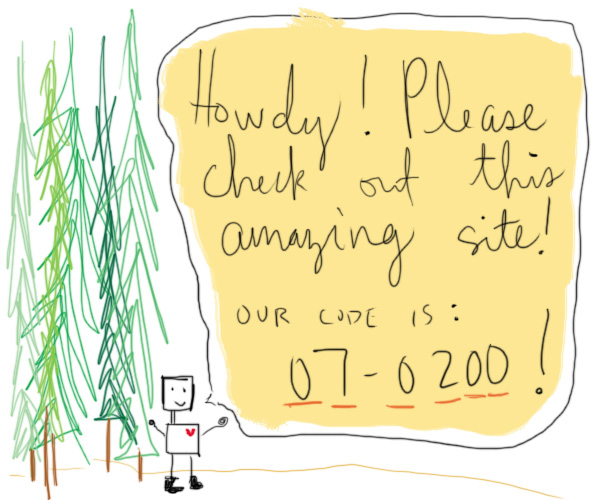 Howdy! Please
check out this
amazing site!
OUR CODE IS:
07-0200!